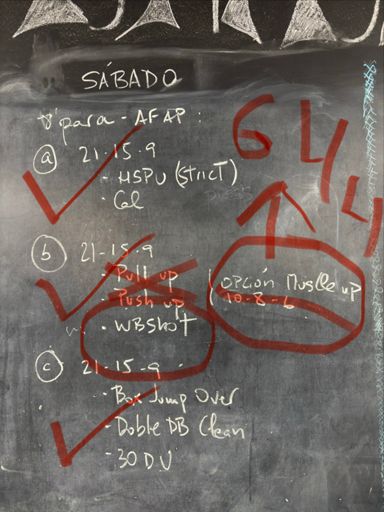 SÁBADO
8' para - AFAP :
a 21-15-9
- HSPU (STRICT)
- Cal
6 4 4
b 21-15-9
- Pull up
- Push up
- WBShot
OPCIÓN Muscle up
10-8-6
c 21-15-9
- Box Jump Over
- Doble DB Clean
- 30 DU